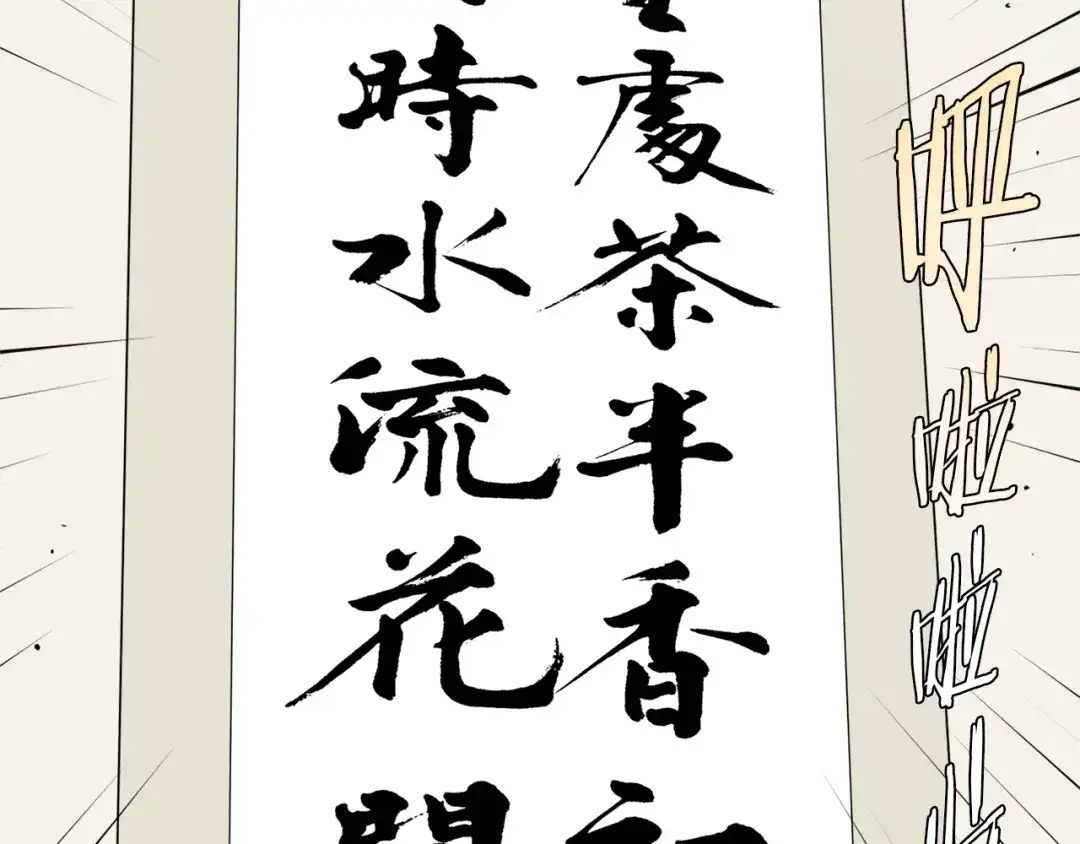 處茶半香
時水流花
呼啦啦